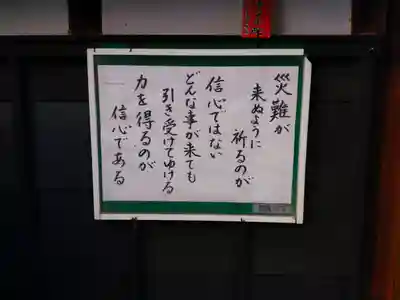 災難が
来ぬように
祈るのが
信心ではない
どんな事が来ても
引き受けてゆける
力を得るのが
信心である